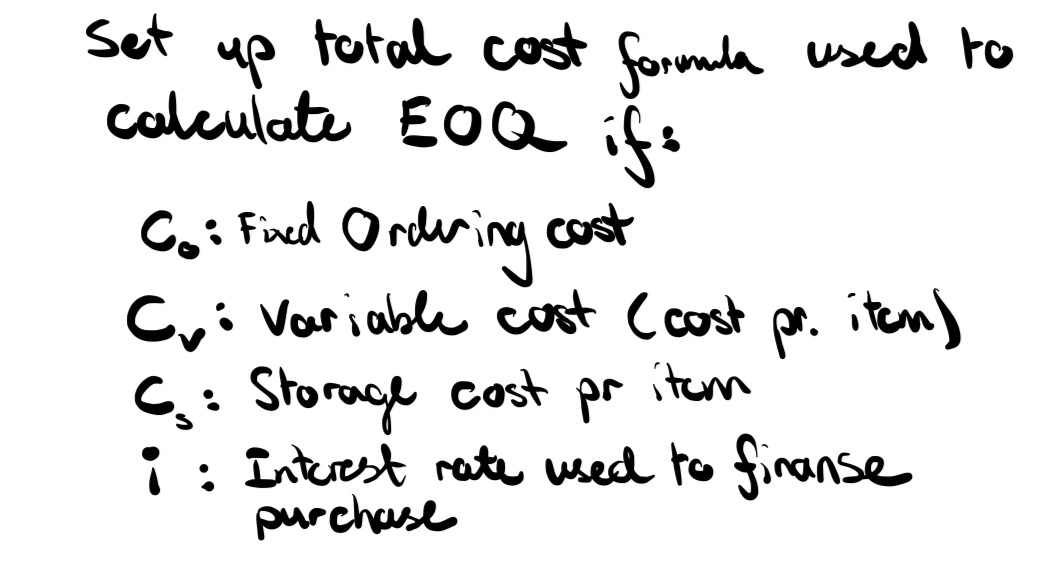 Set up total cost formula used to
calculate EOQ if:
C₀: Fixed Ordering cost
Cᵥ: Variable cost (cost pr. item)
Cₛ: Storage cost pr item
i : Interest rate used to finanse
purchase